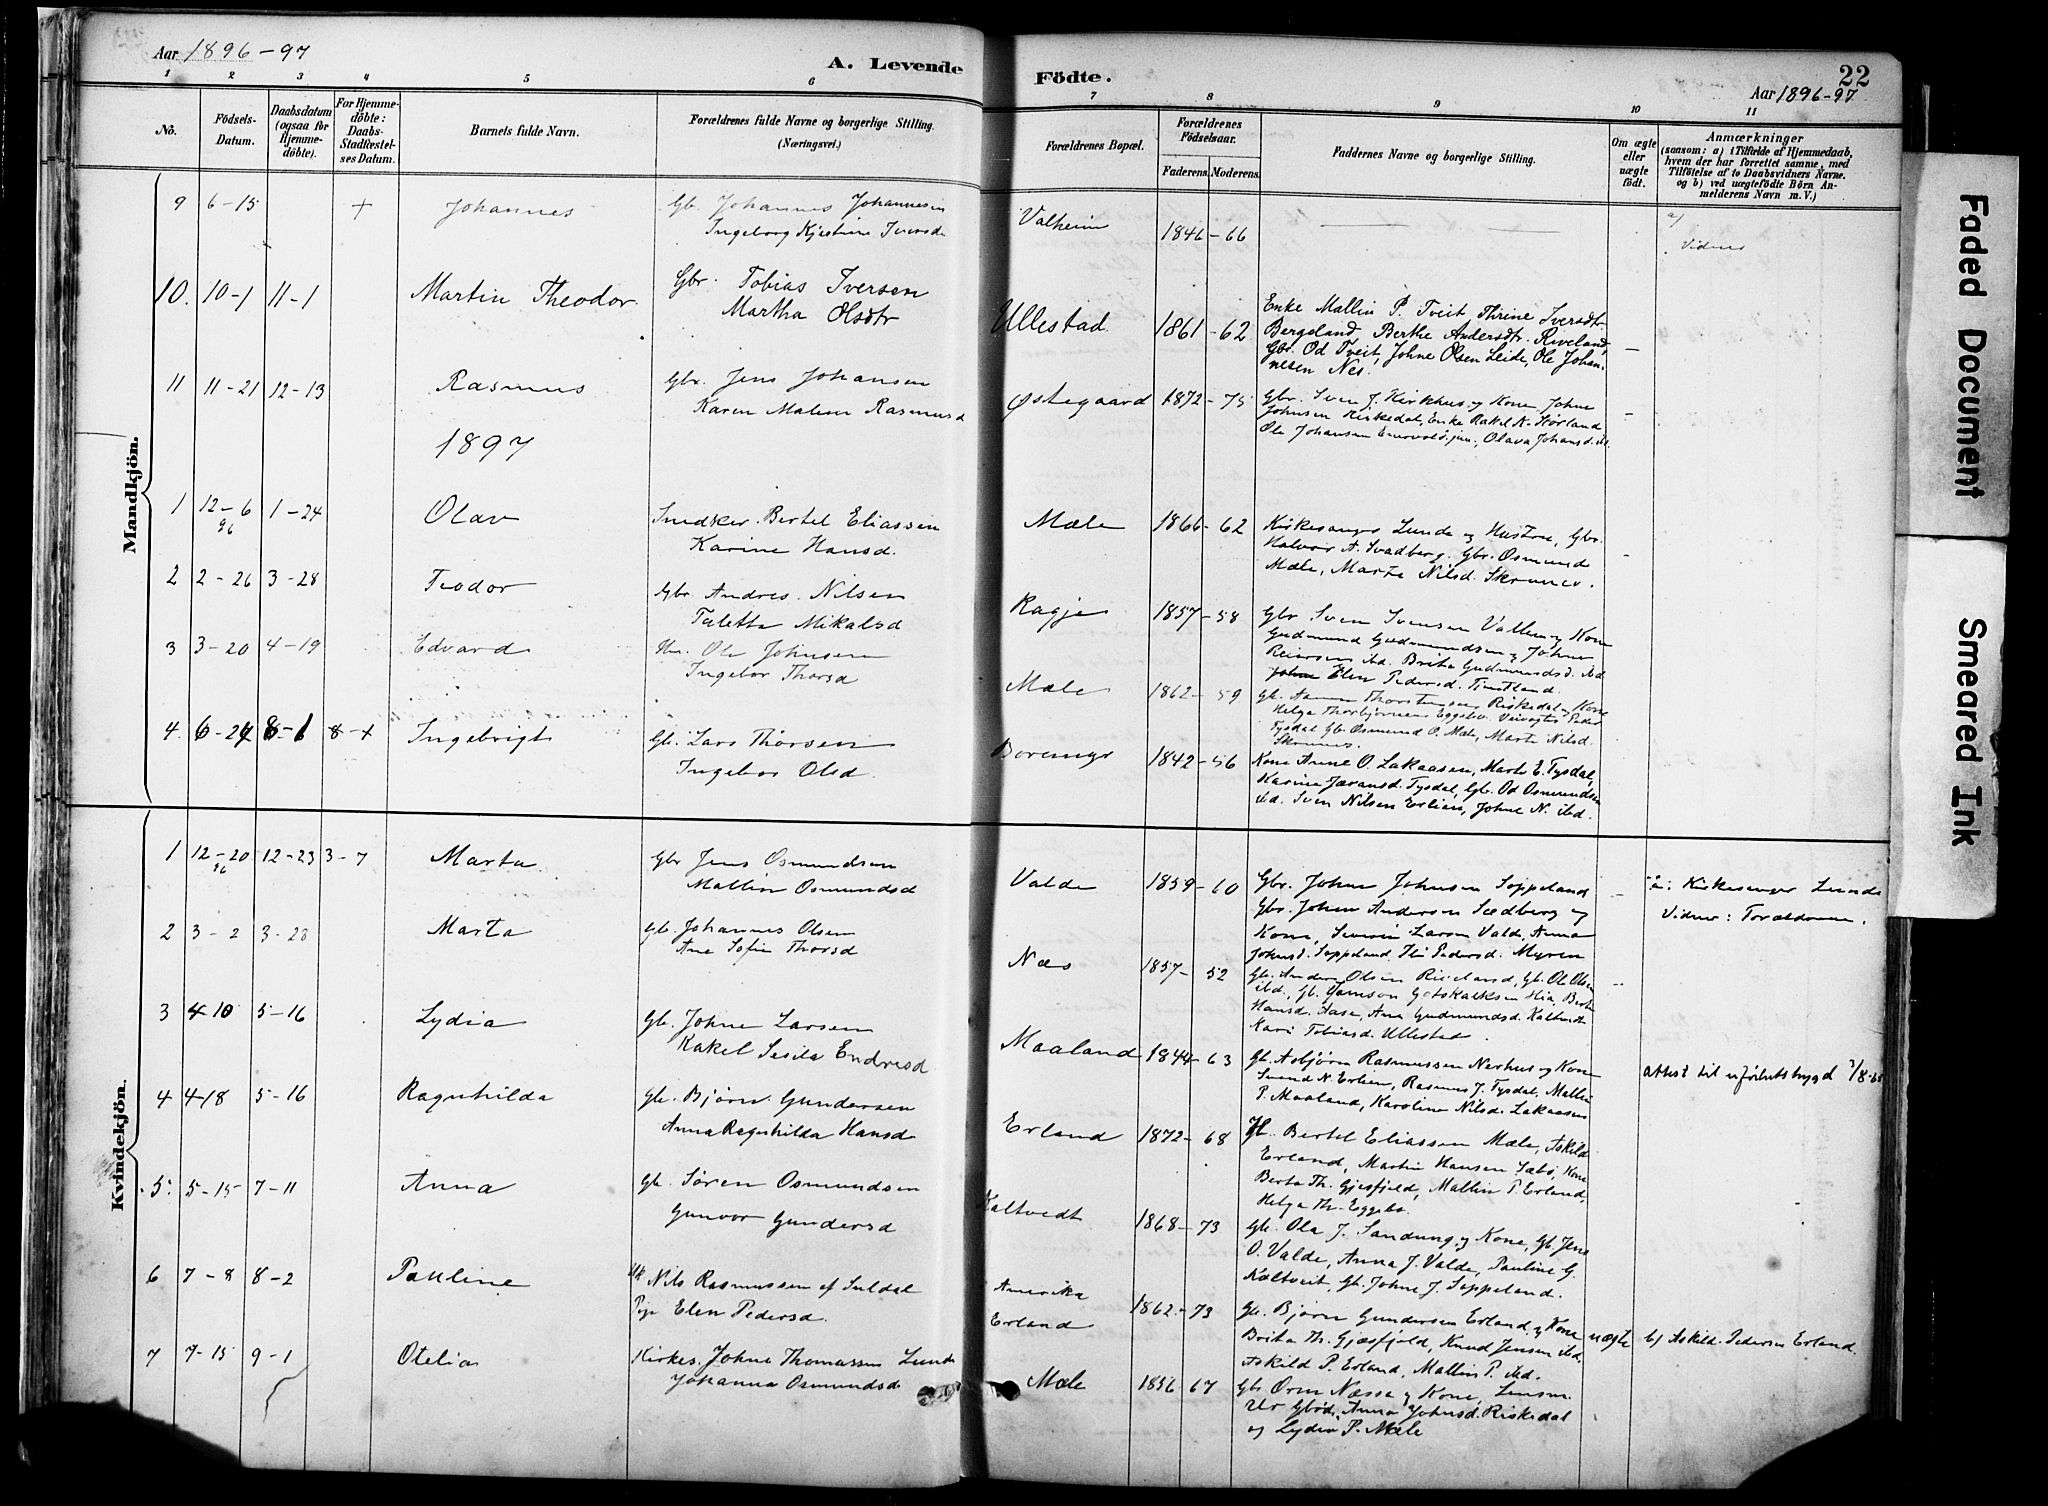 Aar 1896-97
A. Levende
Födte.
22
Aar 1896-97
1 2 3 4 5 6 7 8 9 10 11
No.
Födsels-Datum.
Daabsdatum (ogsaa for Hjemme-döbte).
For Hjemme-döbte: Daabs-Stadfæstel-ses Datum.
Barnets fulde Navn.
Forældrenes fulde Navne og borgerlige Stilling. (Næringsvei.)
Forældrenes Bopæl.
Forældrenes Födselsaar.
Faderens. Moderens.
Faddernes Navne og borgerlige Stilling.
Om ægte eller uægte födt.
Anmærkninger
(saasom: a) i Tilfælde af Hjemmedaab, hvem der har forrettet samme, med Tilföielse af to Daabsvidners Navne. og b) ved uægtefödte Börn An-melderens Navn m. V.)
Mandkjön.
9 6-15 + Johannes Gb. Johannes Johannesen Valheim 1846-66 a)
Ingeborg Kjestine Iversd Vidner
10. 10-1 11-1 Martin Theodor Gbr. Tobias Iversen Ullestad 1861-62 Enke Mallin P. Tveit, Thrine Iversdtr
Martha Olsdtr Bergeland, Berthe Andersdtr. Riveland,
Gbr. Od Tveit, Johne Olsen Leide, Ole Johan-
nesen Nes.
11 11-21 12-13 Rasmus Gbr. Jens Johansen Østegaard 1872-75 Gbr. Sven J. Kirkhus og Kone, Johne
Karen Malene Rasmusd Johnsen Riskedal, Enke Rakel K. Hørland
Ole Johansen jun, Olava Johansd. ibd.
1897
1 12-6 96 1-24 Olav Snedker Bertel Eliassen Mæle 1866-62 Kirkesanger Lunde og Hustru, Gbr.
Karine Hansd. Halvor A. Svadberg. Gbr. Osmund
Mæle, Marta Nilsd.
2 2-26 3-28 Teodor Gbr Andres Nilsen Ragje 1857-58 Gbr Sven Svensen Valle og Kone
Taletta Mikalsd Gudmund Gudmundsen og Johne
Reiersen ibd. Brita Gudmundsd. ibd
Elen Pedersd. Timtland.
3 3-20 4-19 Edvard Ole Johnsen Mæle 1862-59 Gb. Thorstensen Riskedal og Kone
Ingebor Thorsd Helga Thorbjørnsen Eggebø Peder
Tysdal Gb Osmund O. Mæle, Marta Nilsd.
4. 6-24 8-1 8-+ Ingebrigt Gb. Lars Thorsen 1842-56 Kone Anne O. Lakaasen, Marte E. Tysdal,
Ingebor Olsd. Karine Jøransd. Tysdal, Gb. Od Osmundsen
ibd. Sven Nilsen Erlien, Johne N. ibd.
Kvindekjön.
1 12-20 96 12-23 3-7 Marta Gbr Jens Osmundsen Valde 1859-60 Gbr. Johne Johnsen Soppeland
Mallin Osmundsd Gbr. Johan Andersen Svadberg og
Kone, Severin Larsen Valde, Anna
Johnsd. Soppeland Pedersd. Myren
a: Kirkesanger Lunde
Vidner: Forældrene.
2 3-2 3-28 Marta Gb. Johannes Olsen Næs 1857-52 Gb. Anders Olsen Riveland, Gb. Ole Olsen
Ane Sofie Thorsd ibd., Gb. Samson Gotskalksen Hia, Berte
Hansd. Aase, Ane Gudmundsd. Kaltvedt
Kari Tobiasd. Ullestad.
3 4-10 5-16 Lydia Gb. Johne Larsen Maaland 1844-63 Gb. Asbjørn Rasmussen Nerhus og Kone
Rakel Sesila Endresd Svend N. Erlien, Rasmus J. Tysdal, Mallin
P. Maaland, Karoline Nilsd. Lakaasen
attest til
4 4-18 5-16 Ragnhilda Gb. Bjørn Gundersen Erland 1872-68 Bertel Eliassen Mæle, Askild
Anna Ragnhilda Hansd Erland, Martin Hansen Sæbø, Kone
Berta Th. Gjesfjeld, Mallin P. Erland,
Helga Th. Eggebø.
5. 5-15 7-11 Anna Gb. Søren Osmundsen Kaltvedt 1868-73 Gb. Ola J. Sandung og Kone, Gb. Jens
Gunvor Gundersd O. Valde, Anna J. Valde, Pauline G.
Kaltveit, Gb. Johne J. Soppeland.
6 7-8 8-2 Pauline Nils Rasmussen af Suldal Amerika 1862-73 Gb. Bjørn Gundersen Erland og Kone uægte b) Askild Pedersen Erland.
Pige Elen Pedersd. Erland Brita Th. Gjesfjeld, Knud Jensen ibd,
Askild P. Erland, Mallin P. ibd.
7 7-15 9-1 Otelia Kirkes. Johne Thomassen Lunde Mæle 1856 67 Gb. Orm Næssa og Kone, Lensm.
Johanna Osmundsd Anna Johnsd. Riskedal
og Lydia P. Mæle
Faded Document
Smeared Ink